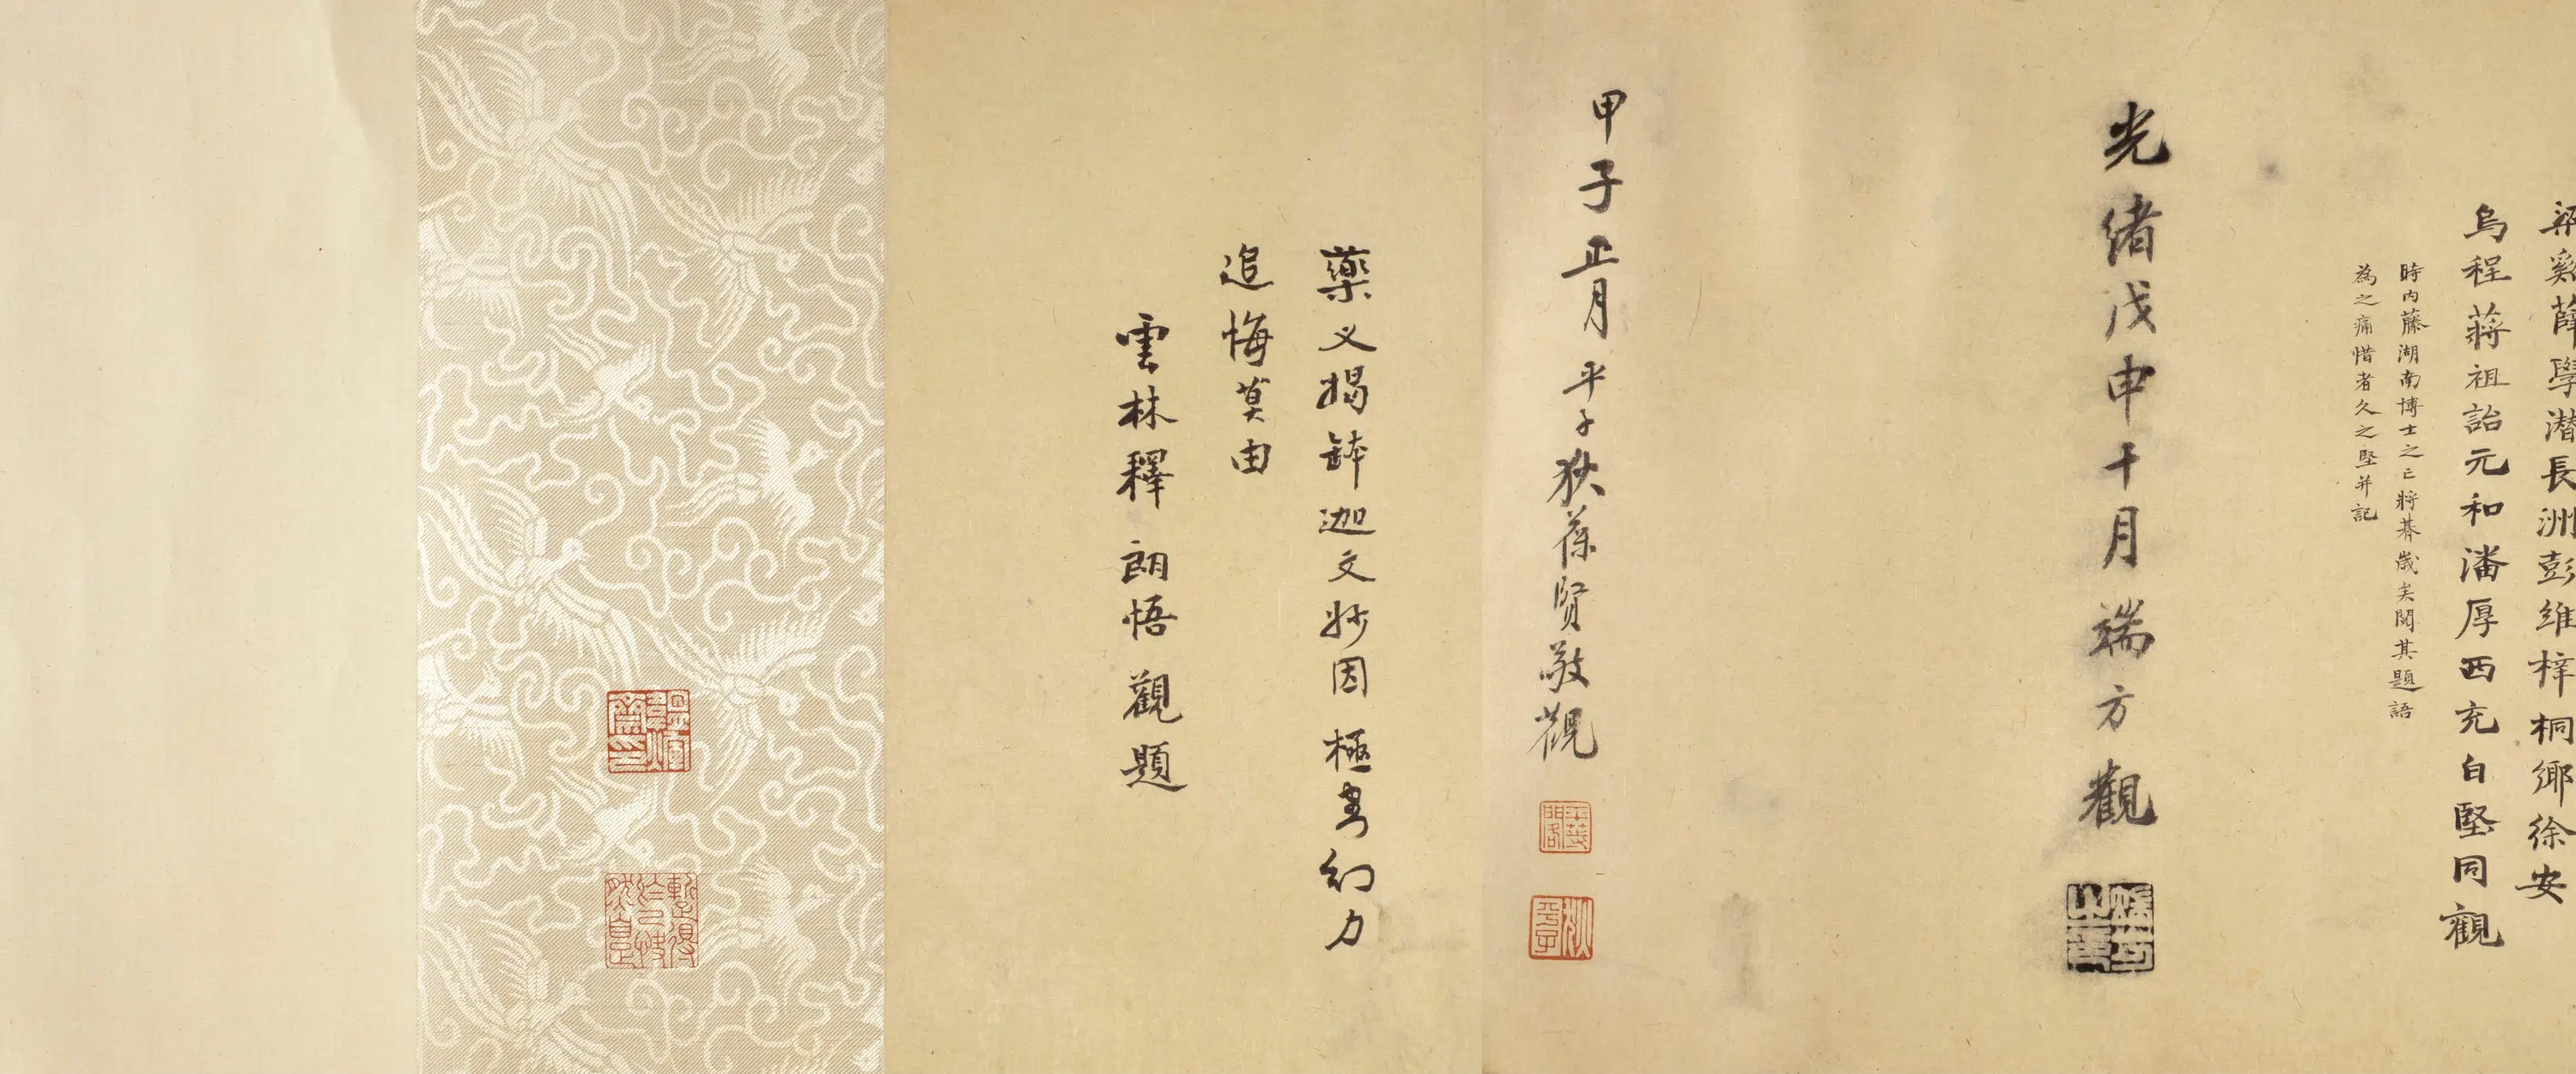 梁谿薛學潛長洲彭維梓桐鄉徐安
烏程蔣祖詒元和潘厚西充白堅同觀
時內藤湖南博士之亡將朞歲矣閱其題語
為之痛惜者久之堅并記
光緒戊申十月端方觀
甲子正月平子狄葆賢敬觀
藥义揭缽迦文妙因極書幻力
追悔莫由
雲林釋朗悟觀題